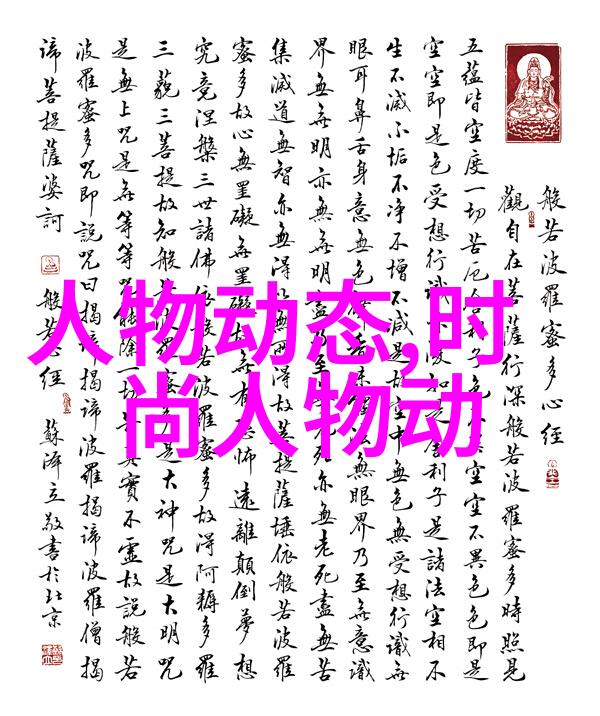 人物动态,时
尚人物动
般若波羅蜜多心經
觀自在菩薩行深般若波羅蜜多時照見
五蘊皆空度一切苦厄舍利子色不異空空不異色色即是
空空即是色受想行識亦復如是舍利子是諸法空相不
生不滅不垢不淨不增不減是故空中無色無受想行識無
眼耳鼻舌身意無色聲香味觸法無眼界乃至無意識
界無無明亦無無明盡乃至無老死亦無老死盡無苦
集滅道無智亦無得以無所得故菩提薩埵依般若波羅
蜜多故心無罣礙無罣礙故無有恐怖遠離顛倒夢想
究竟涅槃三世諸佛依般若波羅蜜多故得阿耨多羅
三藐三菩提故知般若波羅蜜多是大神咒是大明咒
是無上咒是無等等咒能除一切苦真實不虛故說般若
波羅蜜多咒即說咒曰揭諦揭諦波羅揭諦波羅僧揭
諦菩提薩婆訶 般若心經 蘇澤立敬書於北京